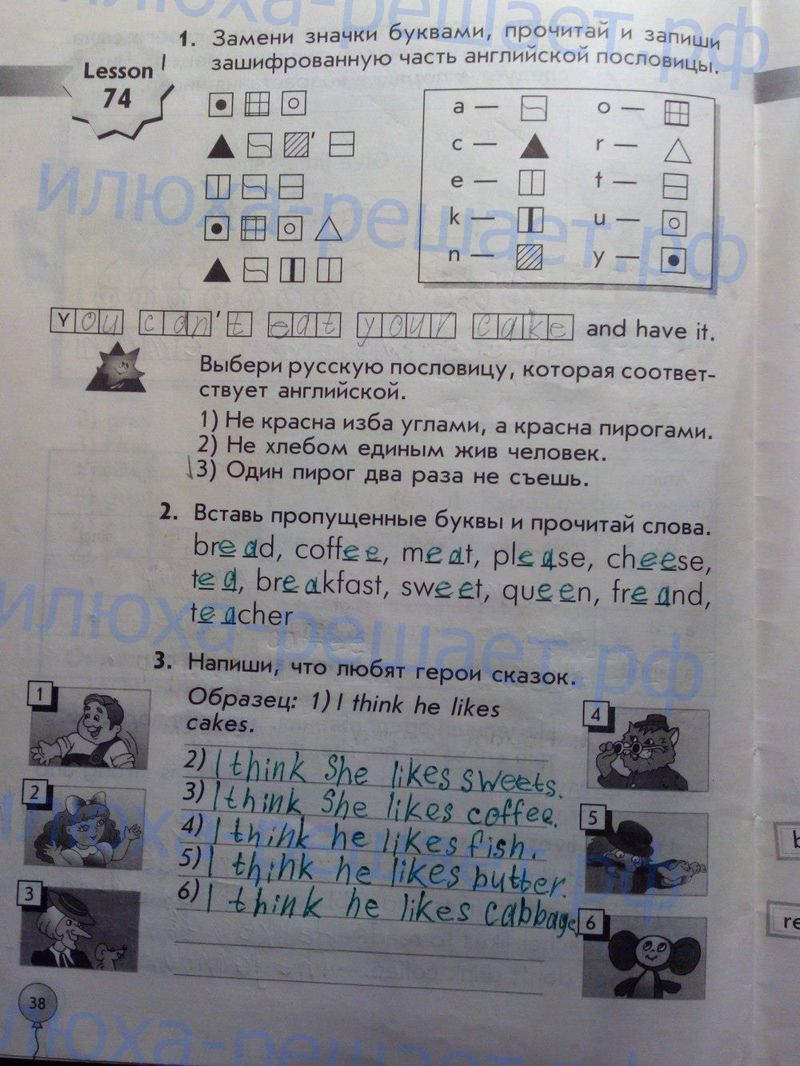 1. Замени значки буквами, прочитай и запиши
зашифрованную часть английской пословицы.
Lesson
74
a — o —
c — r —
e — t —
k — u —
n — y —
You can't eat your cake and have it.
Выбери русскую пословицу, которая соответ-
ствует английской.
1) Не красна изба углами, а красна пирогами.
2) Не хлебом единым жив человек.
3) Один пирог два раза не съешь.
2. Вставь пропущенные буквы и прочитай слова.
bread, coffee, meat, please, cheese,
tea, breakfast, sweet, queen, freand,
teacher
3. Напиши, что любят герои сказок.
Образец: 1) I think he likes
cakes.
2) I think She likes sweets.
3) I think She likes coffee.
4) I think he likes fish.
5) I think he likes butter.
6) I think he likes cabbage.
1
2
3
4
5
6
38
b
re
илюха-решает.рф
илюха-решает.рф
илюха-решает.рф
илюха-решает.рф
илюха-решает.рф